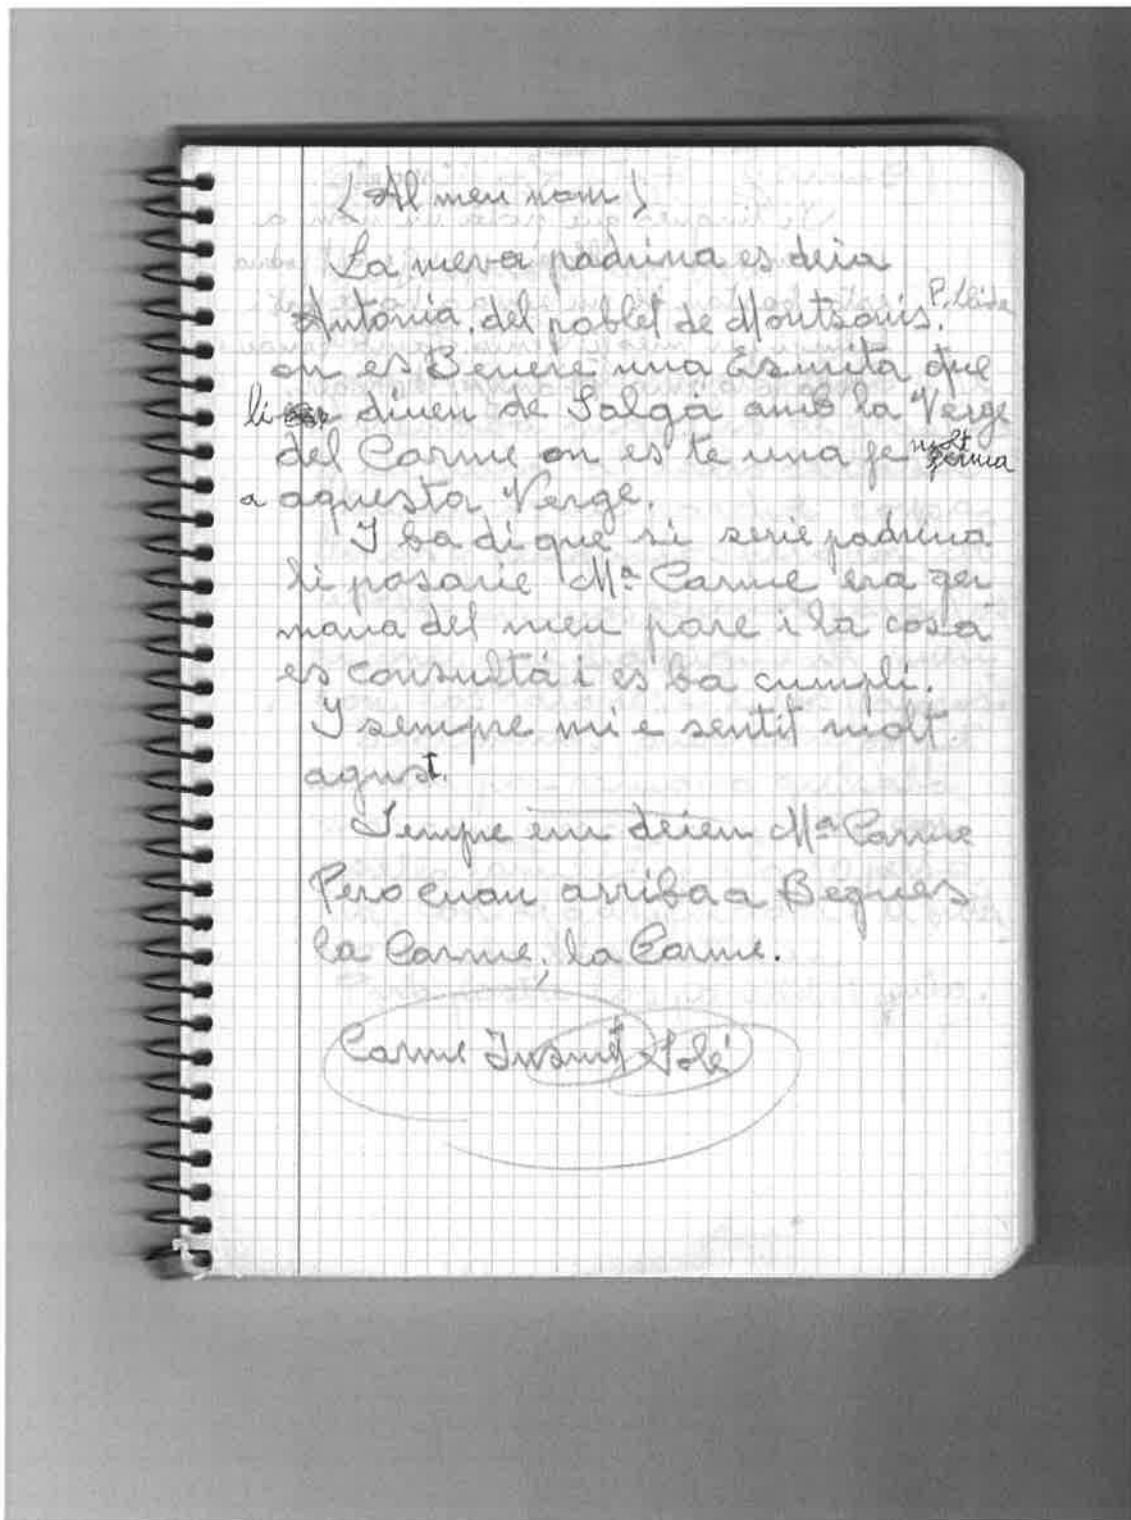 (Al meu nom)
La meva padrina es deia
Antonia, del poblet de Montsonis. P. Lleida
on es Benere una Esmita que
li diuen de Salgà amb la Verge
del Carme on es te una fe molt ferma
a aquesta Verge.
I ba di que si serie padrina
li posarie Mª Carme era ger
mana del meu pare i la cosa
es consultá i es ba cumpli.
I sempre mi e sentit molt
agust.
Sempre em deien Mª Carme
Pero cuan arriba a Begues
la Carme, la Carme.
Carme Solé